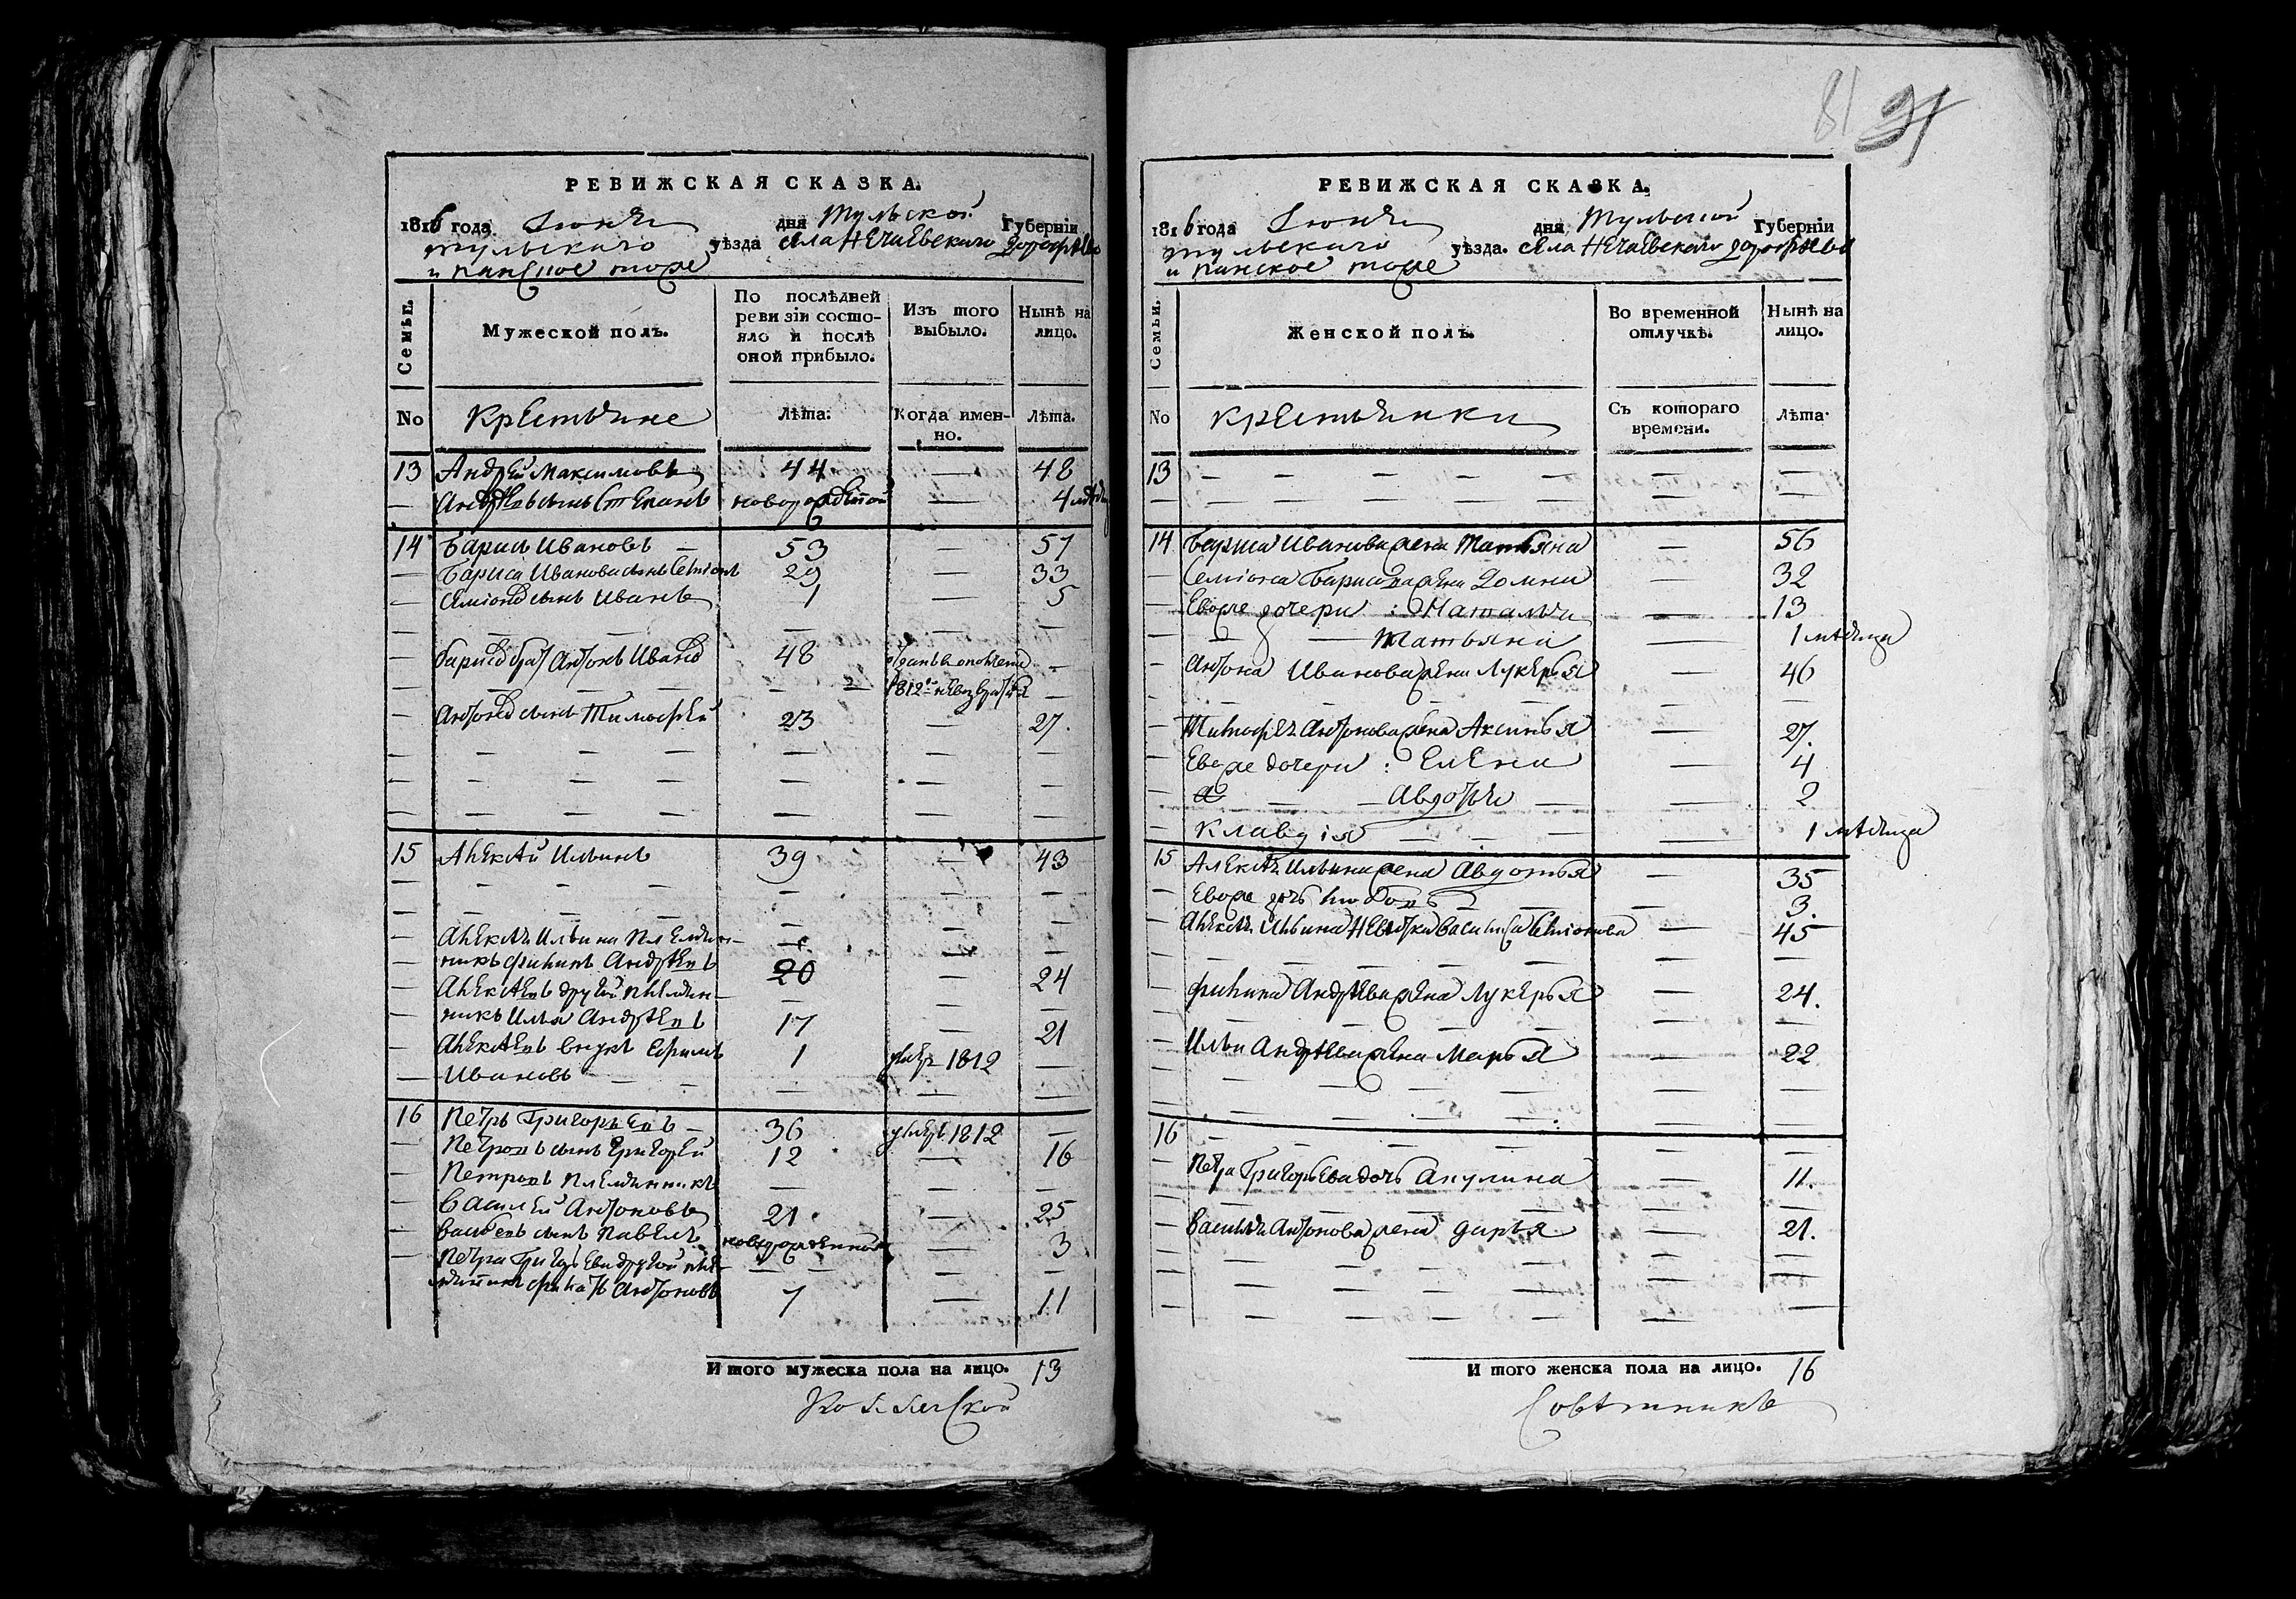 РЕВИЖСКАЯ СКАЗКА.
1816 года Iюня дня Тульской Губернiи
тульскаго уѣзда села Нечаевскаго
и панское тоже
Семьи.
Мужеской полъ.
По послѣдней ревизiи состояло и послѣ оной прибыло.
Изъ того выбыло.
Нынѣ на лицо.
No Крестьяне Лѣта. Когда именно. Лѣта.
13 Андрей Максимовъ 44 — 48
— Андрѣевъ сынъ Степанъ новорожденой — 4
14 Барисъ Ивановъ — 53 — 57
— Бариса Иванова сынъ Семiонъ 29 — 33
— Семiонов сынъ Иванъ 1 — 5
— Барисов брат Антонъ Иванов 48 отданъ в ополчение —
1812го невозвратился
— Антонов сынъ Тимофей 23 — 27.
15 Алексѣй Ильинъ 39 — 43
— Алексѣя Ильина племян-
— никъ Филипъ Андрѣевъ 20 — 24
— Алексѣевъ другой племян-
— никъ Илья Андрѣевъ 17 — 21
— Алексѣевъ внукъ Ефимъ 1 умер 1812 —
— Ивановъ —
16 Петръ Григорьевъ — 36 умеръ 1812 —
— Петровъ сынъ Григорей 12 — 16
— Петровъ племянникъ
— Василей Антоновъ 21. — 25
— Васильевъ сынъ Павелъ новорожденной — 3
— Петра Григорьева другой пле-
мянникъ Филатъ Антоновъ 7 — 11
И того мужеска пола на лицо. 13
81 91
РЕВИЖСКАЯ СКАЗКА.
1816 года Iюня дня Тульской Губернiи
тульскаго уѣзда. села Нечаевскаго
и панское тоже
Семьи.
Женской полъ.
Во временной отлучкѣ.
Нынѣ на лицо.
No крестьянки Съ котораго времени. Лѣта.
13 — — — — — —
14 Бариса Иванова жена Татьяна — 56
— Семiона Барисова жена Домна — 32
— Евоже дочери: Наталья 13
— — — Татьяна — 1 мѣсяца
— Антона Иванова жена Лукерья — 46
— Тимофея Антонова жена Аксинья — 27.
— Евоже дочери: Елена — 4
— — — Авдотья — 2
— Клавдiя — — 1 мѣсяца
15 Алексѣя Ильина жена Авдотья — 35
— Евоже дочь Любовь — 3.
— Алексѣя Ильина невѣстка Василиса Семiонова — 45
— Филипа Андрѣева жена Лукерья — 24.
— Ильи Андрѣева жена Марья — 22
16 — — — — —
— Петра Григорьева дочь Акулина — 11.
— Василья Антонова жена дарья — 21.
И того женска пола на лицо. 16
Совѣтникъ